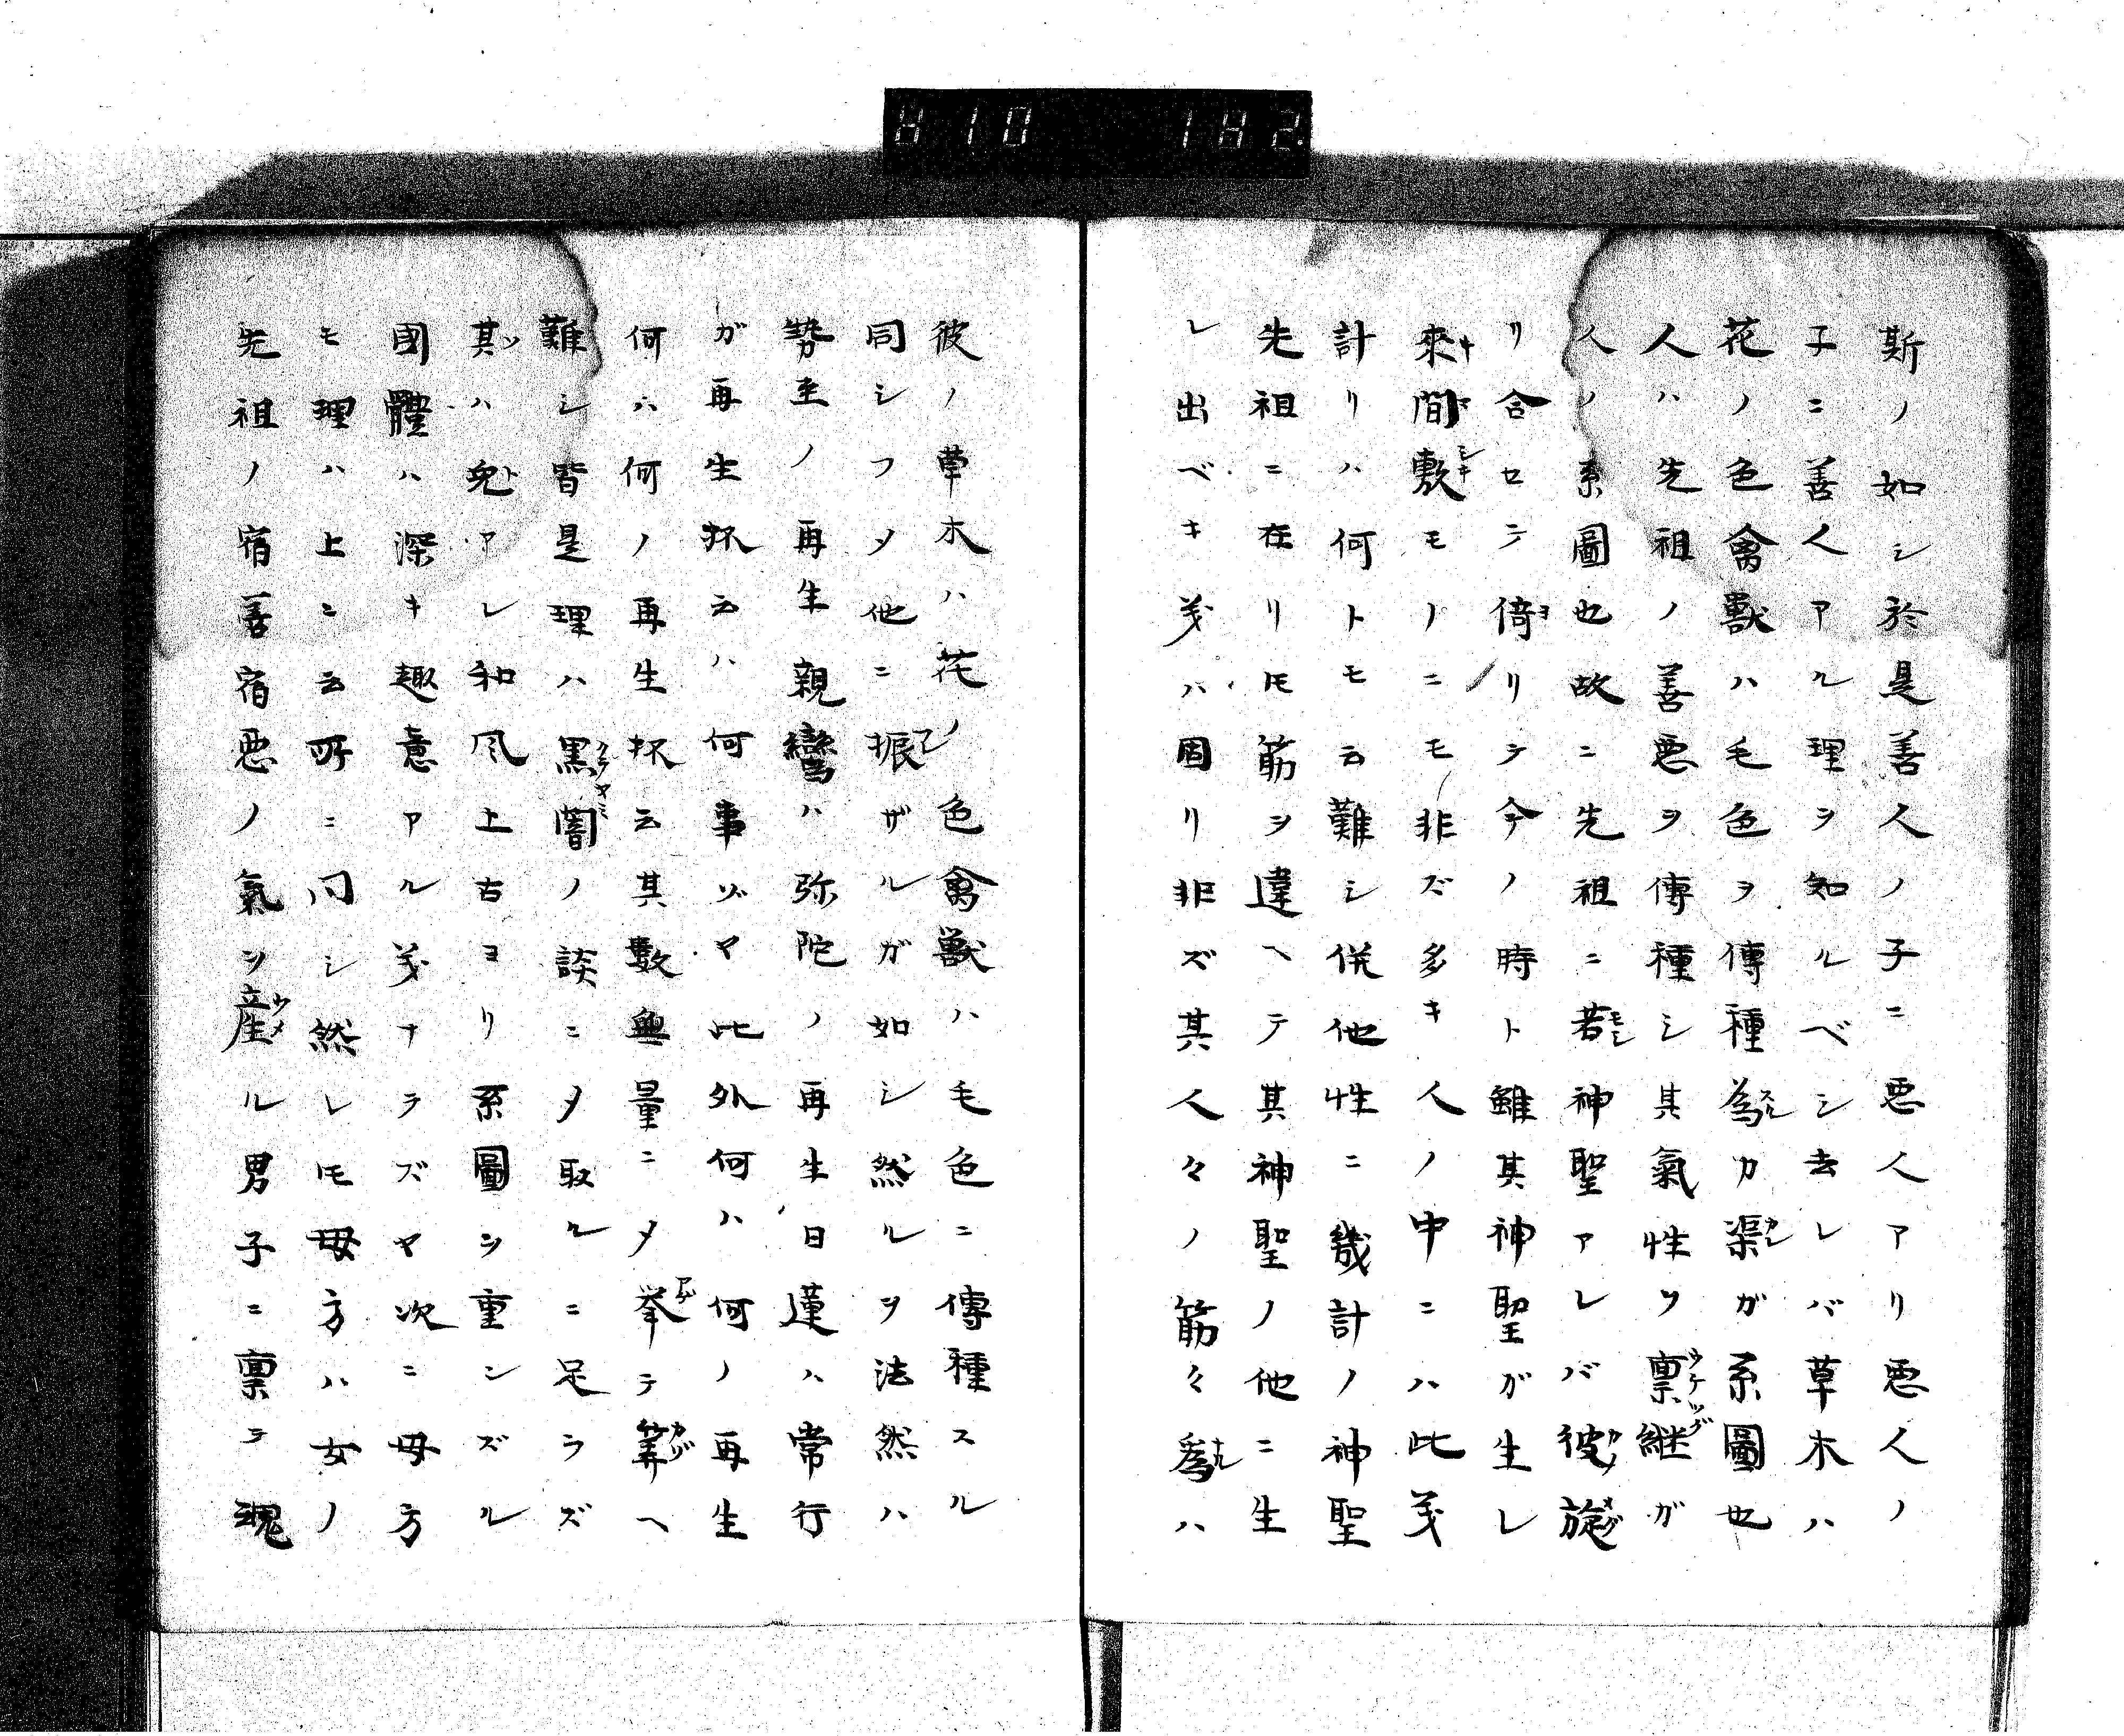 810 182.
斯ノ如シ於是善人ノ子ニ悪人アリ悪人ノ
子ニ善人アル理ヲ知ルベシ去レバ草木ハ
花ノ色禽獸ハ毛色ヲ傳種為カ渠ガ系圖也
人ハ先祖ノ善悪ヲ傳種シ其氣性ヲ禀継ガ
人ノ系圖也故ニ先祖ニ若神聖アレバ彼旋
リ合セテ倚リテ今ノ時ト雖其神聖ガ生レ
來間敷モノニモ非ズ多キ人ノ中ニハ此義
計リハ何トモ云難シ併他性ニ幾計ノ神聖
先祖ニ在リ𪜈筋ヲ違ヘテ其神聖ノ他ニ生
レ出ベキ義ハ固リ非ズ其人々ノ筋々為ハ
彼ノ草木ハ花ノ色禽獸ハ毛色ニ傳種スル
同シフノ他ニ振ザルガ如シ然ルヲ法然ハ
勢至ノ再生親鸞ハ弥陀ノ再生日蓮ハ常行
ガ再生抔云ハ何事ゾヤ此外何ハ何ノ再生
何ハ何ノ再生抔云其數無量ニメ挙テ算ヘ
難シ皆是理ハ黒闇ノ談ニメ取ルニ足ラズ
其ハ兔アレ和風上古ヨリ系圖ヲ重ンズル
國體ハ深キ趣意アル義ナラズヤ次ニ母方
モ理ハ上ニ云所ニ同シ然レ𪜈母方ハ女ノ
先祖ノ宿善宿悪ノ氣ヲ産ル男子ニ禀テ魂